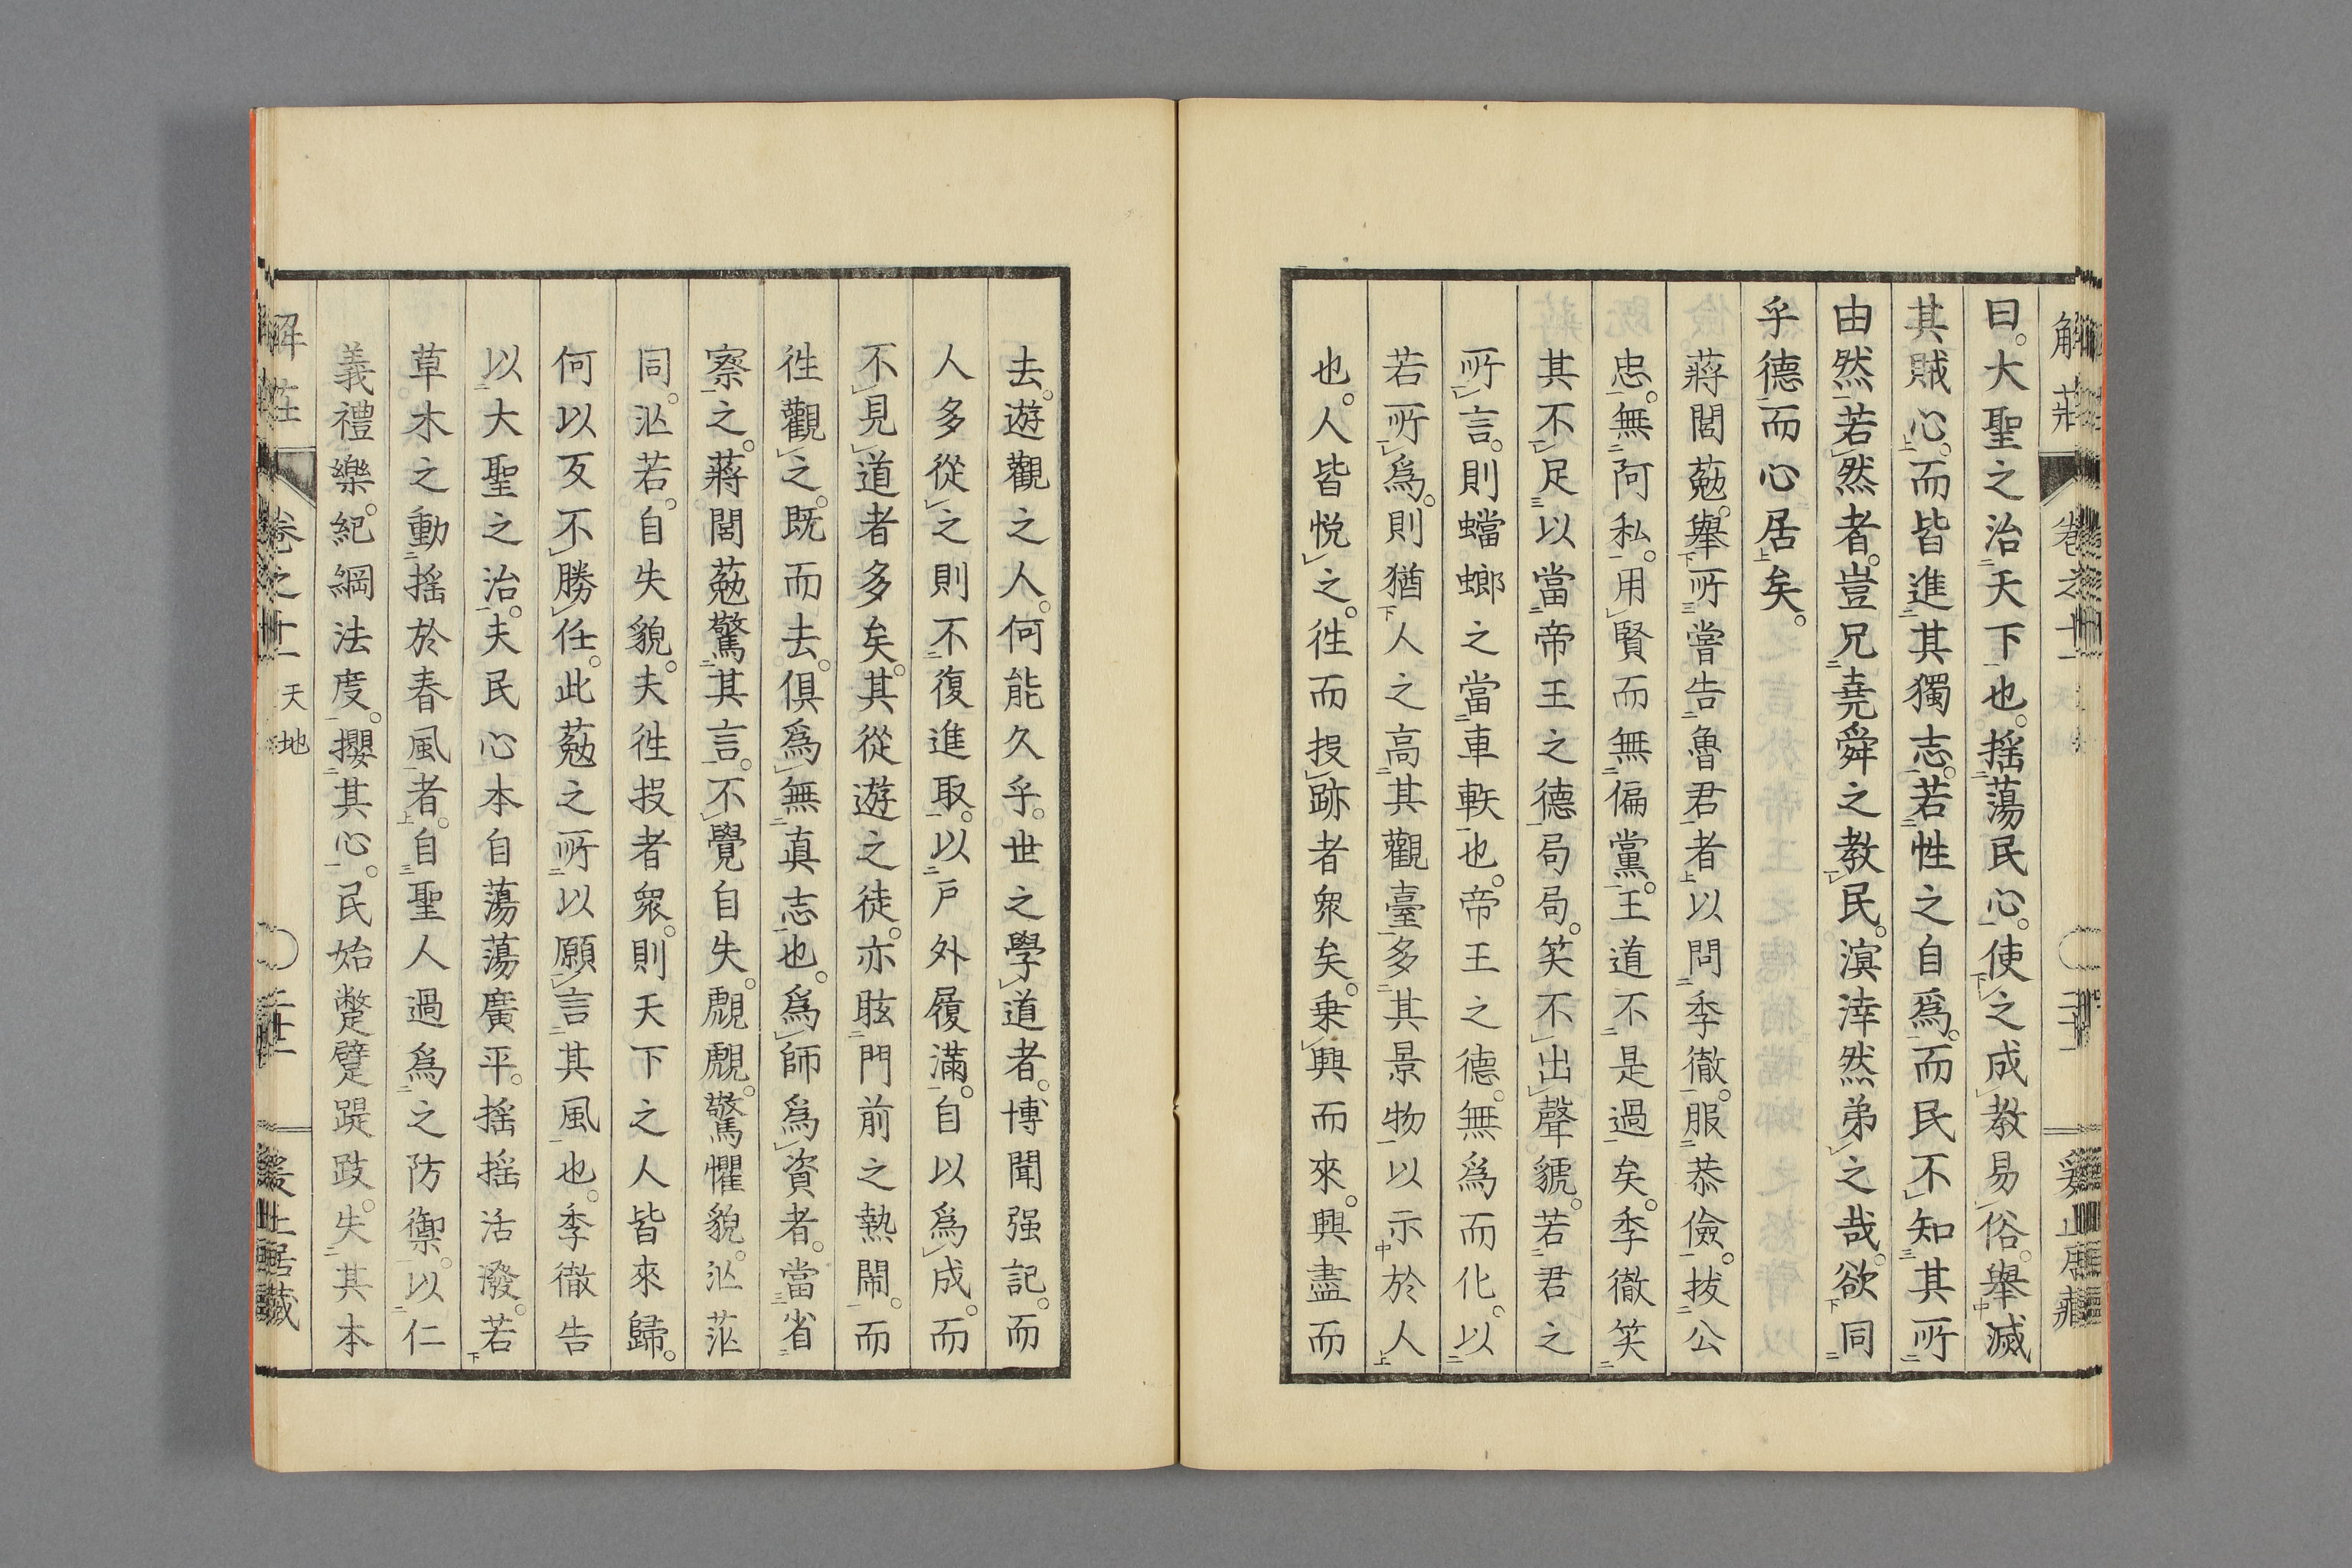 曰。大聖之治天下也。揺蕩民心。使之成教易俗。舉滅
其賊心。而皆進其獨志。若性之自爲。而民不知其所
由然。若然者。豈兄堯舜之教民。溟涬然弟之哉。欲同
乎德而心居矣。
蔣閭葂。舉所嘗告魯君者以問季徹。服恭儉。拔公
忠。無阿私。用賢而無偏黨。王道不是過矣。季徹笑
其不足以當帝王之德。局局。笑不出聲貌。若君之
所言。則蟷螂之當車軼也。帝王之德。無爲而化。以
若所爲。則猶人之高其觀臺。多其景物以示於人
也。人皆悦之。徃而投跡者衆矣。乗興而來。興盡而
去。遊觀之人。何能久乎。世之學道者。博聞强記。而
人多從之則不復進取。以戸外履滿。自以爲成。而
不見道者多矣。其從遊之徒。亦眩門前之熱鬧。而
徃觀之。既而去。俱爲無真志也。爲師爲資者。當省
察之。蔣閭葂驚其言。不覺自失。覤覤。驚懼貌。汒茫
同。汒若。自失貌。夫徃投者衆。則天下之人皆來歸。
何以亙不勝任。此葂之所以願言其風也。季徹告
以大聖之治。夫民心本自蕩蕩廣平。揺揺活潑。若
草木之動揺於春風者。自聖人過爲之防禦。以仁
義禮樂。紀綱法度。攖其心。民始蹩躠踶跂。失其本
解莊
卷之十二
天地